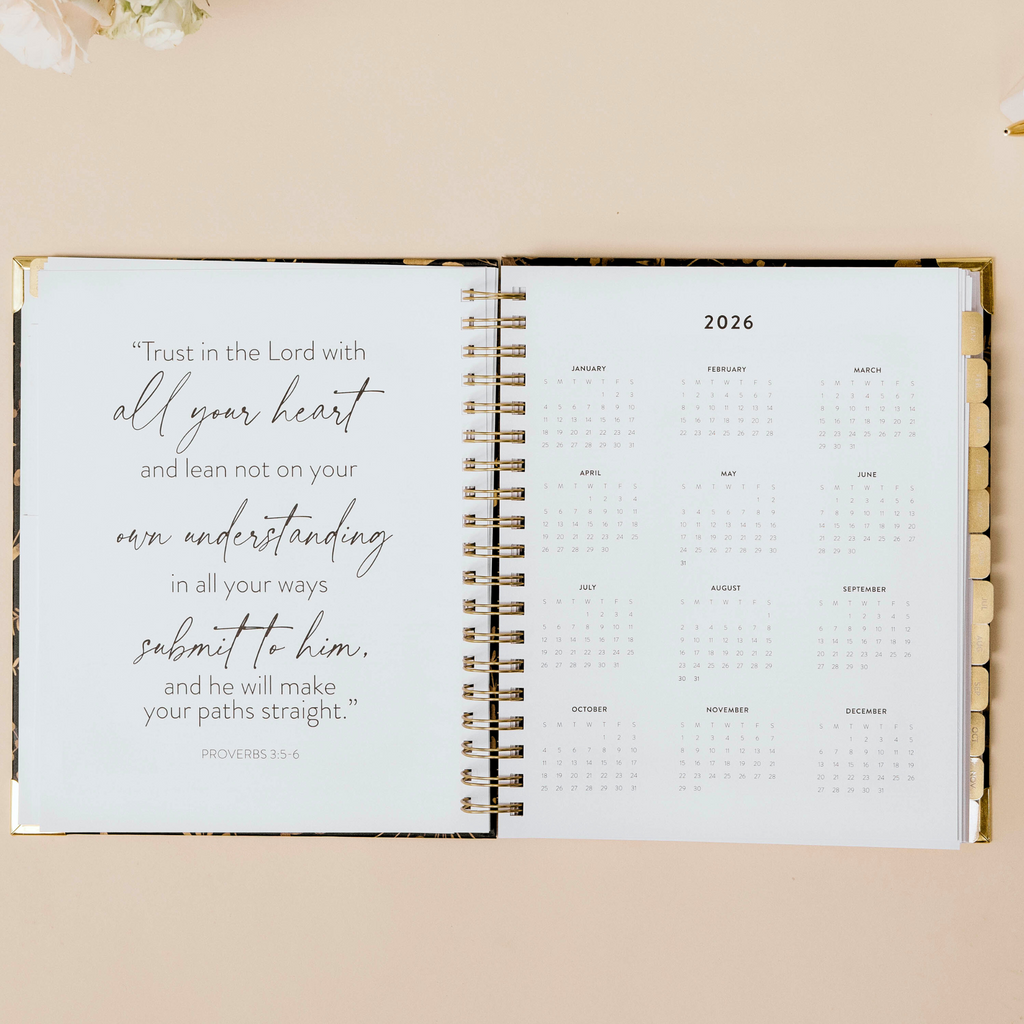 “Trust in the Lord with
all your heart
and lean not on your
own understanding
in all your ways
submit to him,
and he will make
your paths straight.”
PROVERBS 3:5-6
2026
JANUARY
S M T W T F S
1 2 3
4 5 6 7 8 9 10
11 12 13 14 15 16 17
18 19 20 21 22 23 24
25 26 27 28 29 30 31
FEBRUARY
S M T W T F S
1 2 3 4 5 6 7
8 9 10 11 12 13 14
15 16 17 18 19 20 21
22 23 24 25 26 27 28
MARCH
S M T W T F S
1 2 3 4 5 6 7
8 9 10 11 12 13 14
15 16 17 18 19 20 21
22 23 24 25 26 27 28
29 30 31
APRIL
S M T W T F S
1 2 3 4
5 6 7 8 9 10 11
12 13 14 15 16 17 18
19 20 21 22 23 24 25
26 27 28 29 30
MAY
S M T W T F S
1 2
3 4 5 6 7 8 9
10 11 12 13 14 15 16
17 18 19 20 21 22 23
24 25 26 27 28 29 30
31
JUNE
S M T W T F S
1 2 3 4 5 6
7 8 9 10 11 12 13
14 15 16 17 18 19 20
21 22 23 24 25 26 27
28 29 30
JULY
S M T W T F S
1 2 3 4
5 6 7 8 9 10 11
12 13 14 15 16 17 18
19 20 21 22 23 24 25
26 27 28 29 30 31
AUGUST
S M T W T F S
1
2 3 4 5 6 7 8
9 10 11 12 13 14 15
16 17 18 19 20 21 22
23 24 25 26 27 28 29
30 31
SEPTEMBER
S M T W T F S
1 2 3 4 5
6 7 8 9 10 11 12
13 14 15 16 17 18 19
20 21 22 23 24 25 26
27 28 29 30
OCTOBER
S M T W T F S
1 2 3
4 5 6 7 8 9 10
11 12 13 14 15 16 17
18 19 20 21 22 23 24
25 26 27 28 29 30 31
NOVEMBER
S M T W T F S
1 2 3 4 5 6 7
8 9 10 11 12 13 14
15 16 17 18 19 20 21
22 23 24 25 26 27 28
29 30
DECEMBER
S M T W T F S
1 2 3 4 5
6 7 8 9 10 11 12
13 14 15 16 17 18 19
20 21 22 23 24 25 26
27 28 29 30 31
JUL
AUG
SEP
OCT
NOV